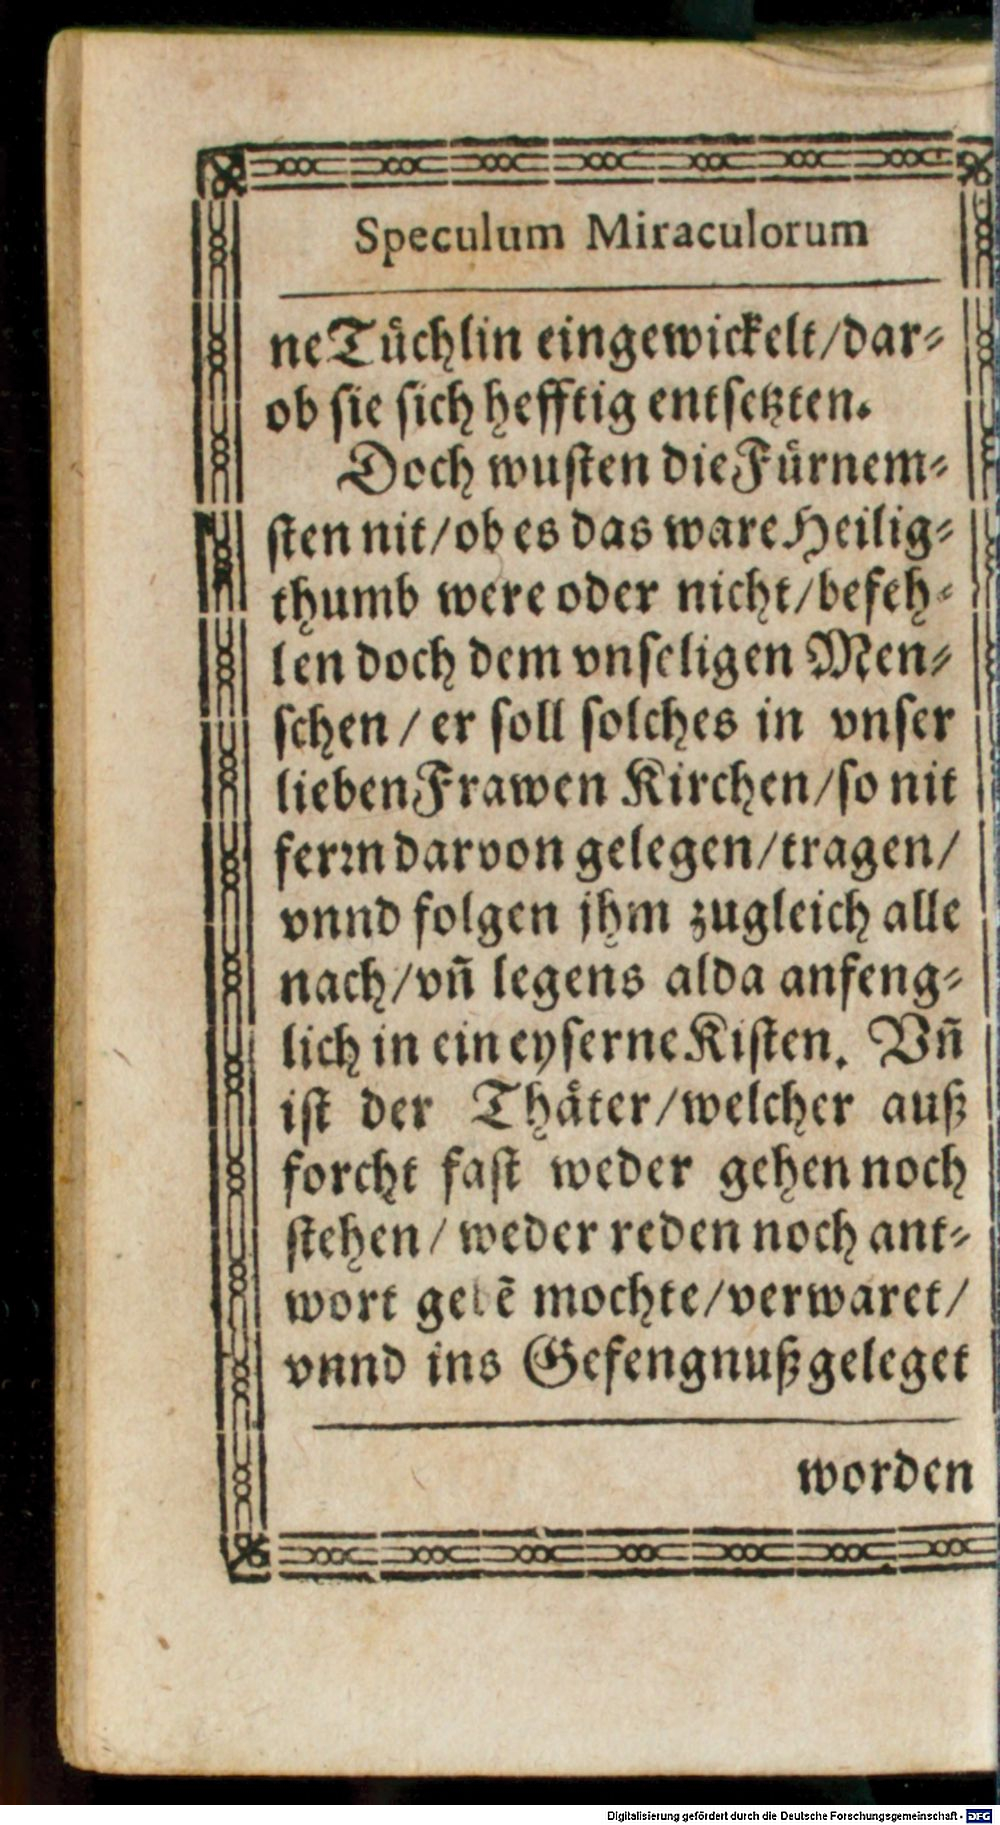 Speculum Miraculorum
ne Tüchlin eingewickelt/dar⸗
ob sie sich hefftig entsetzten.
Doch wusten die Fürnem⸗
sten nit/ob es das ware Heilig⸗
thumb were oder nicht/befeh⸗
len doch dem vnseligen Men⸗
schen / er soll solches in vnser
lieben Frawen Kirchen/so nit
ferꝛn darvon gelegen/tragen/
vnnd folgen jhm zugleich alle
nach/vñ legens alda anfeng⸗
lich in ein eyserne Kisten. Vñ
ist der Thäter/welcher auß
forcht fast weder gehen noch
stehen / weder reden noch ant⸗
wort gebẽ mochte/verwaret/
vnnd ins Gefengnuß geleget
worden
Digitalisierung gefördert durch die Deutsche Forschungsgemeinschaft - DFG